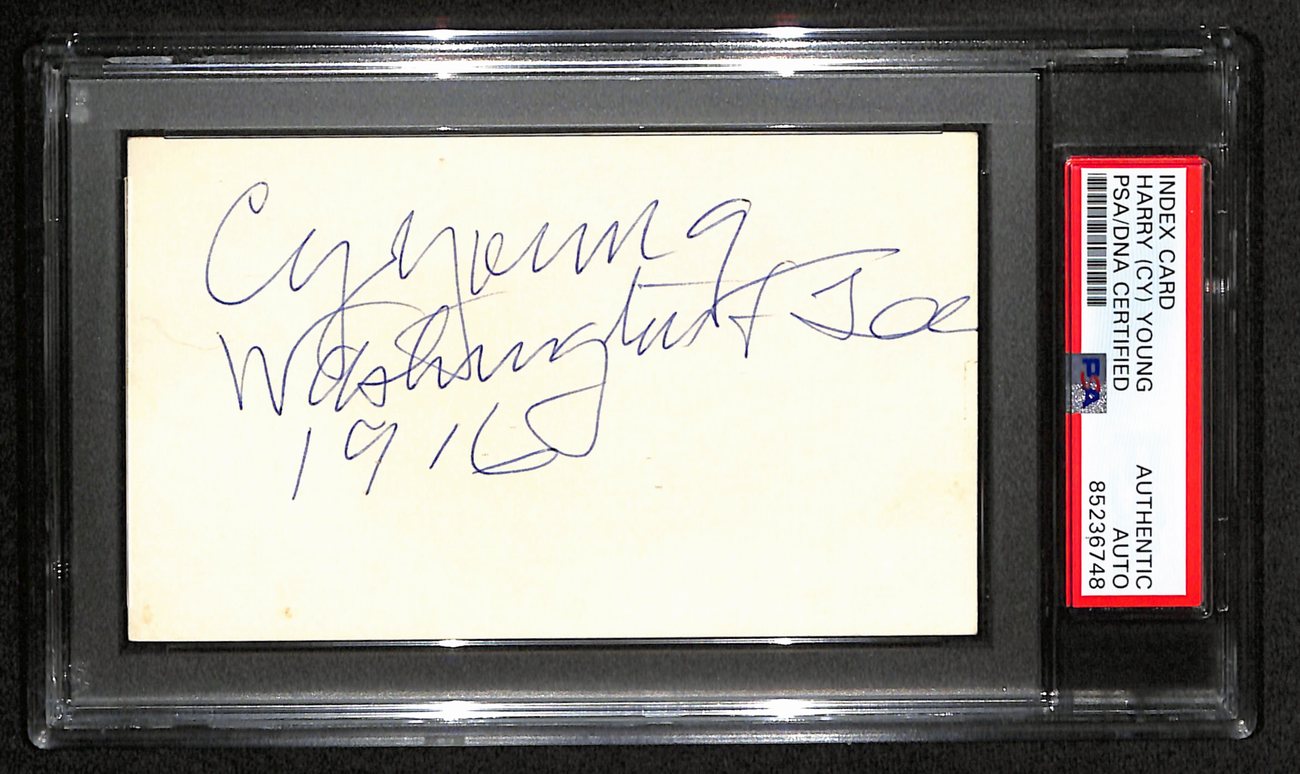 Cy Young
Washington & Lee
1916
INDEX CARD
HARRY (CY) YOUNG
PSA/DNA CERTIFIED
AUTHENTIC
AUTO
85236748
PSA